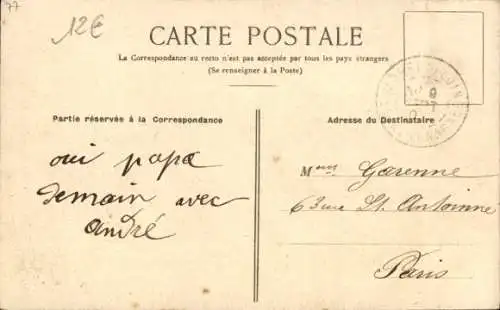 77
12€
CARTE POSTALE
La Correspondance au recto n'est pas acceptée par tous les pays étrangers
(Se renseigner à la Poste)
Partie réservée à la Correspondance
oui papa
demain avec
andré
Adresse du Destinataire
Mme Garenne
63 rue St. Antoinne
Paris